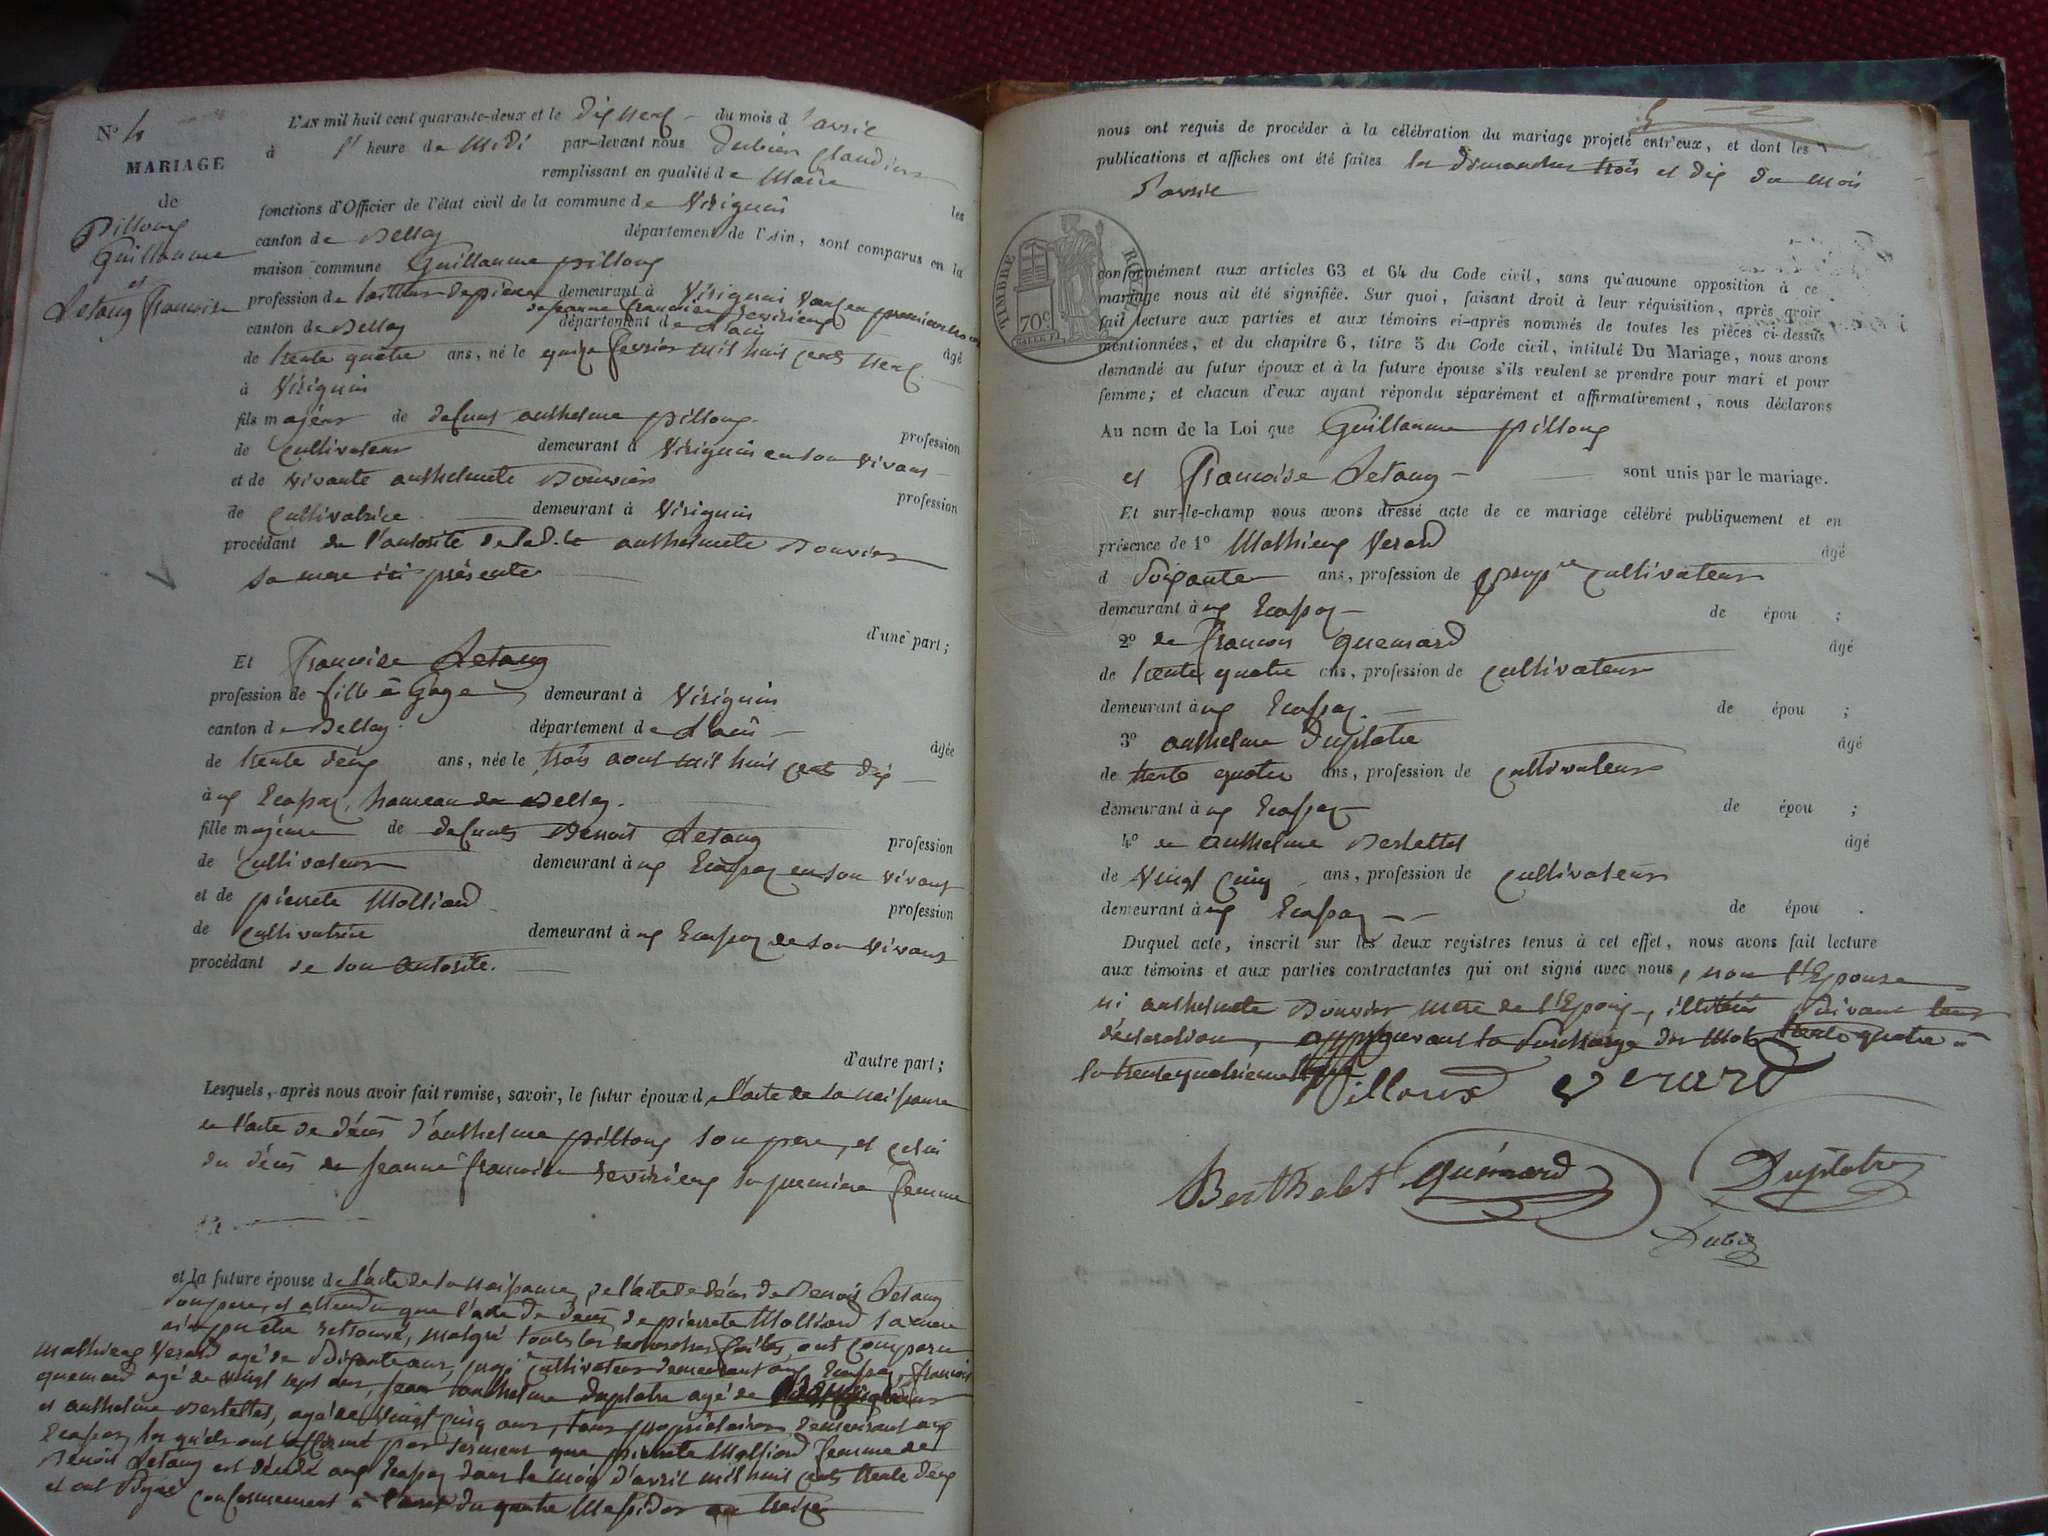 N° 4
MARIAGE
de
Pilloux
Guillaume
et
Letang Francoise
L'AN mil huit cent quarante-deux et le dix neuf du mois d'avril
à 1' heure de Midi par-devant nous Dubien Claudius
remplissant en qualité de Maire les
fonctions d'Officier de l'état civil de la commune de Virignin
canton de Belley département de l'Ain, sont comparus en la
maison commune Guillaume pilloux
profession de tailleur de pierre demeurant à Virignin veuf en premieres
de jeanne francoise
canton de Belley département de l'ain âgé
de trente quatre ans, né le quinze fevrier mil huit cents neuf
à Virignin
fils majeur de defunt anthelme pilloux profession
de cultivateur demeurant à Virignin en son vivant
et de vivante anthelmete Bouvier profession
de cultivatrice demeurant à Virignin
procédant de l'autorité de ladite anthelmete Bouvier
sa mere ici présente
d'une part;
Et Francoise Letang
profession de fille à Gage demeurant à Virignin
canton de Belley département de l'ain âgée
de trente deux ans, née le trois aout mil huit cents dix
à hameau de Belley
fille majeure de defunts Benoit Letang profession
de cultivateur demeurant à en son vivant
et de pierrete Molliard profession
de cultivatrice demeurant à de son vivant
procédant de son autorité.
d'autre part;
Lesquels, après nous avoir fait remise, savoir, le futur époux de l'acte de sa naissance
de l'acte de décès d'anthelme pilloux son pere, et celui
du décès de jeanne francoise sa premiere femme
et la future épouse de l'acte de sa naissance, de l'acte de décès de Benoit Letang
son pere, et attendu que l'acte de décès de pierrete Molliard sa mere
n'a pu etre retrouvé, malgré toutes les recherches faites, ont comparu
mathieux Verard agé de soixante ans, cultivateur demeurant francois
quemard agé de vingt sept ans, jean anthelme duplatre agé de
et anthelme Bertellet, agé de vingt cinq ans, tous propriétaires demeurant
les quels ont affirmé par serment que pierrete Molliard femme de
Benoit Letang est décédé dans le mois d'avril mil huit cents trente deux
et ont signé conformement à l'avis du quatre Messidor an treize
nous ont requis de procéder à la célébration du mariage projeté entr'eux, et dont les
publications et affiches ont été faites les dimanches trois et dix du mois
d'avril
TIMBRE ROYAL
70c
conformément aux articles 63 et 64 du Code civil, sans qu'aucune opposition à ce
mariage nous ait été signifiée. Sur quoi, faisant droit à leur réquisition, après avoir
fait lecture aux parties et aux témoins ci-après nommés de toutes les pièces ci-dessus
mentionnées, et du chapitre 6, titre 5 du Code civil, intitulé Du Mariage, nous avons
demandé au futur époux et à la future épouse s'ils veulent se prendre pour mari et pour
femme; et chacun d'eux ayant répondu séparément et affirmativement, nous déclarons
Au nom de la Loi que Guillaume pilloux
et Francoise Letang sont unis par le mariage.
Et sur-le-champ nous avons dressé acte de ce mariage célébré publiquement et en
présence de 1° Mathieux Verard âgé
d soixante ans, profession de cultivateur
demeurant à de épou ;
2° de francois quemard âgé
de trente quatre ans, profession de cultivateur
demeurant à de épou ;
3° anthelme duplatre âgé
de trente quatre ans, profession de cultivateur
demeurant à de épou ;
4° de anthelme Bertellet âgé
de vingt cinq ans, profession de cultivateur
demeurant à de épou .
Duquel acte, inscrit sur les deux registres tenus à cet effet, nous avons fait lecture
aux témoins et aux parties contractantes qui ont signé avec nous, non l'Epouse
ni anthelmete Bouvier mere de l'Epoux, illitérés suivant leur
déclaration, approuvant la surcharge des mots trente quatre à
la trente quatrieme ligne
Pilloux Verard
Berthelet Quémard Duplatre
Dubien